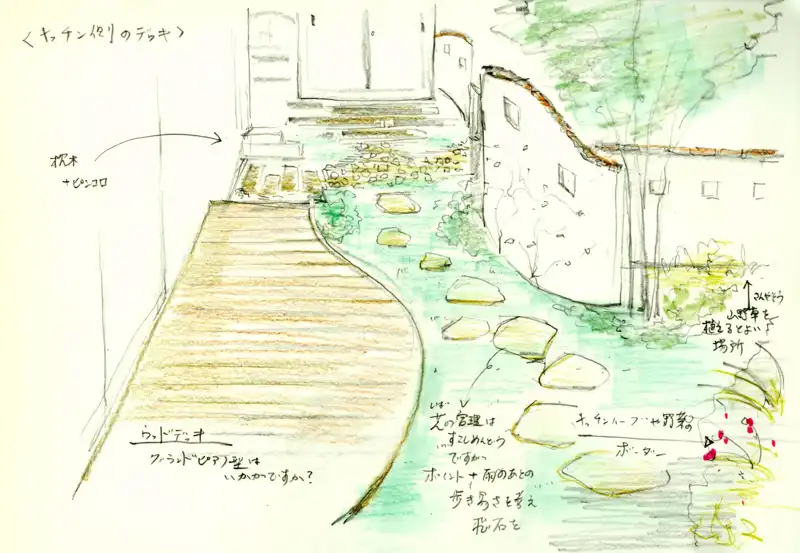 〈キッチン側のデッキ〉
枕木
+ピンコロ
さんやそう
山野草を
植えるとよい
場所
ウッドデッキ
グランドピアノ型は
いかがですか?
しば
芝の管理は
すこしめんどう
ですが、
ポイント+雨のあとの
歩き易さを考え
飛石を
キッチンハーブや野菜の
ボーダー